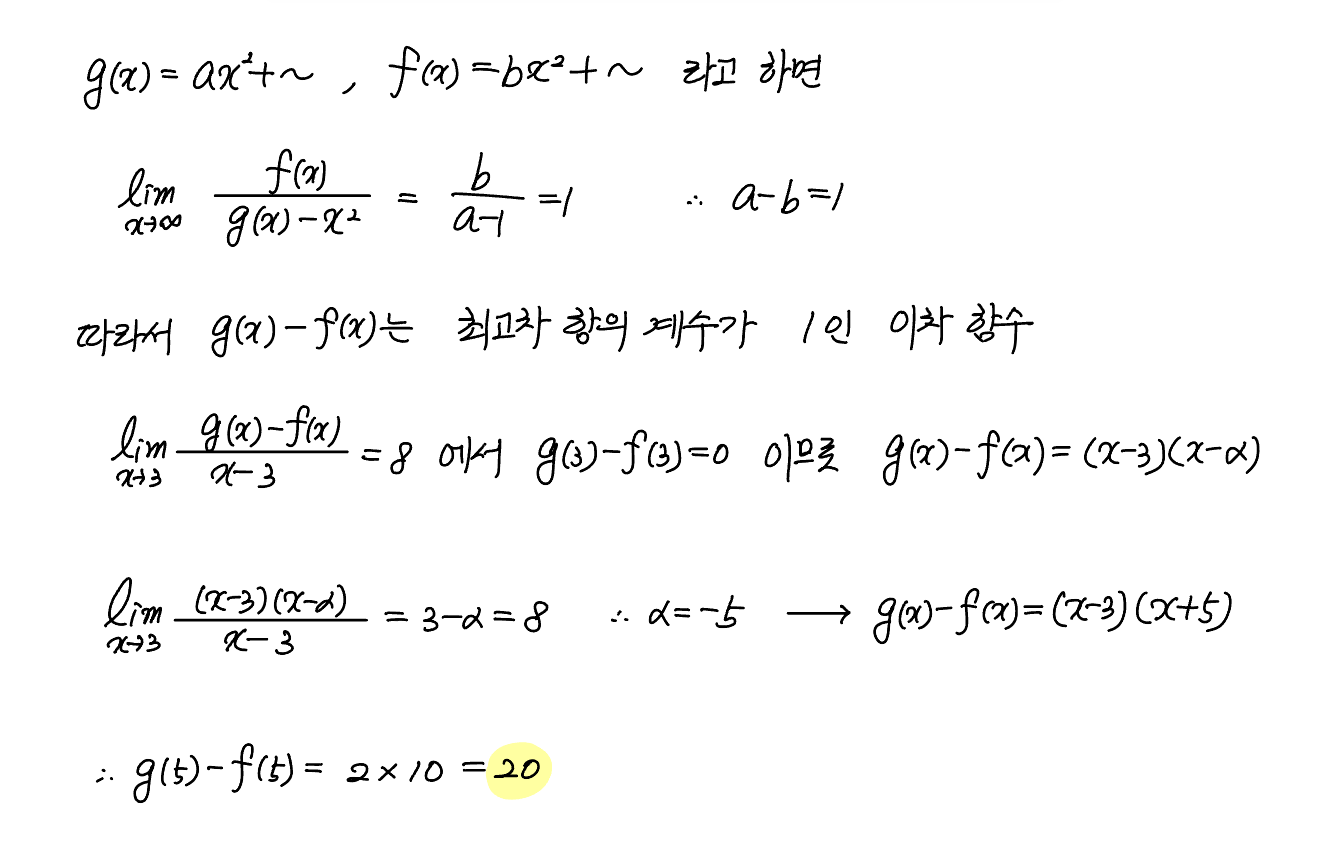 g(x) = ax²+~ , f(x) = bx²+~ 라고 하면
lim x→∞ f(x) / g(x)-x² = b / a-1 = 1 ∴ a-b=1
따라서 g(x)-f(x)는 최고차 항의 계수가 1인 이차 함수
lim x→3 g(x)-f(x) / x-3 = 8 에서 g(3)-f(3)=0 이므로 g(x)-f(x)=(x-3)(x-α)
lim x→3 (x-3)(x-α) / x-3 = 3-α=8 ∴ α=-5 → g(x)-f(x)=(x-3)(x+5)
∴ g(5)-f(5) = 2×10 = 20